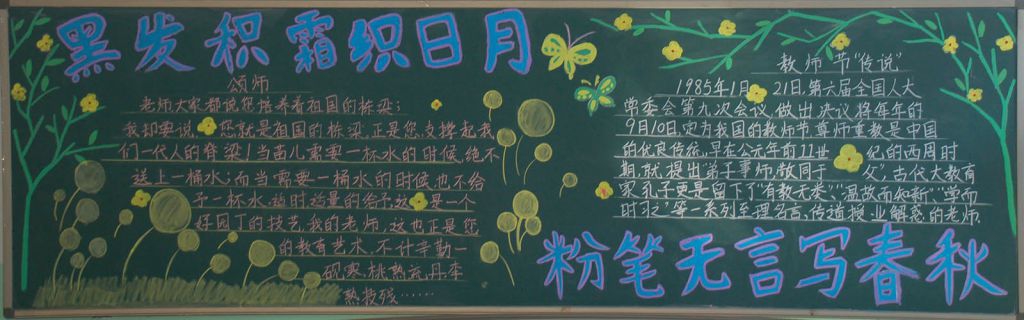 黑发积霜织日月
颂师
老师大家都说您培养着祖国的栋梁;
我却要说,您就是祖国的栋梁.正是您,支撑起我
们一代人的脊梁!当苗儿需要一杯水的时候,绝不
送上一桶水;而当需要一桶水的时候也不给
予一杯水.适时适量的给予,这是一个
好园丁的技艺.我的老师,这也正是您
的教育艺术.不计辛勤一
砚寒,桃熟流丹李
熟枝残······
教师节"传说"
1985年1月21日,第六届全国人大
常委会第九次会议,做出决议将每年的
9月10日,定为我国的教师节尊师重教是中国
的优良传统,早在公元年前11世纪的西周时
期,就提出"弟子事师,敬同于父";古代大教育
家孔子更是留下了"有教无类"、"温故而知新"、"学而
时习之"等一系列至理名言、传道授业解惑的老师,
粉笔无言写春秋